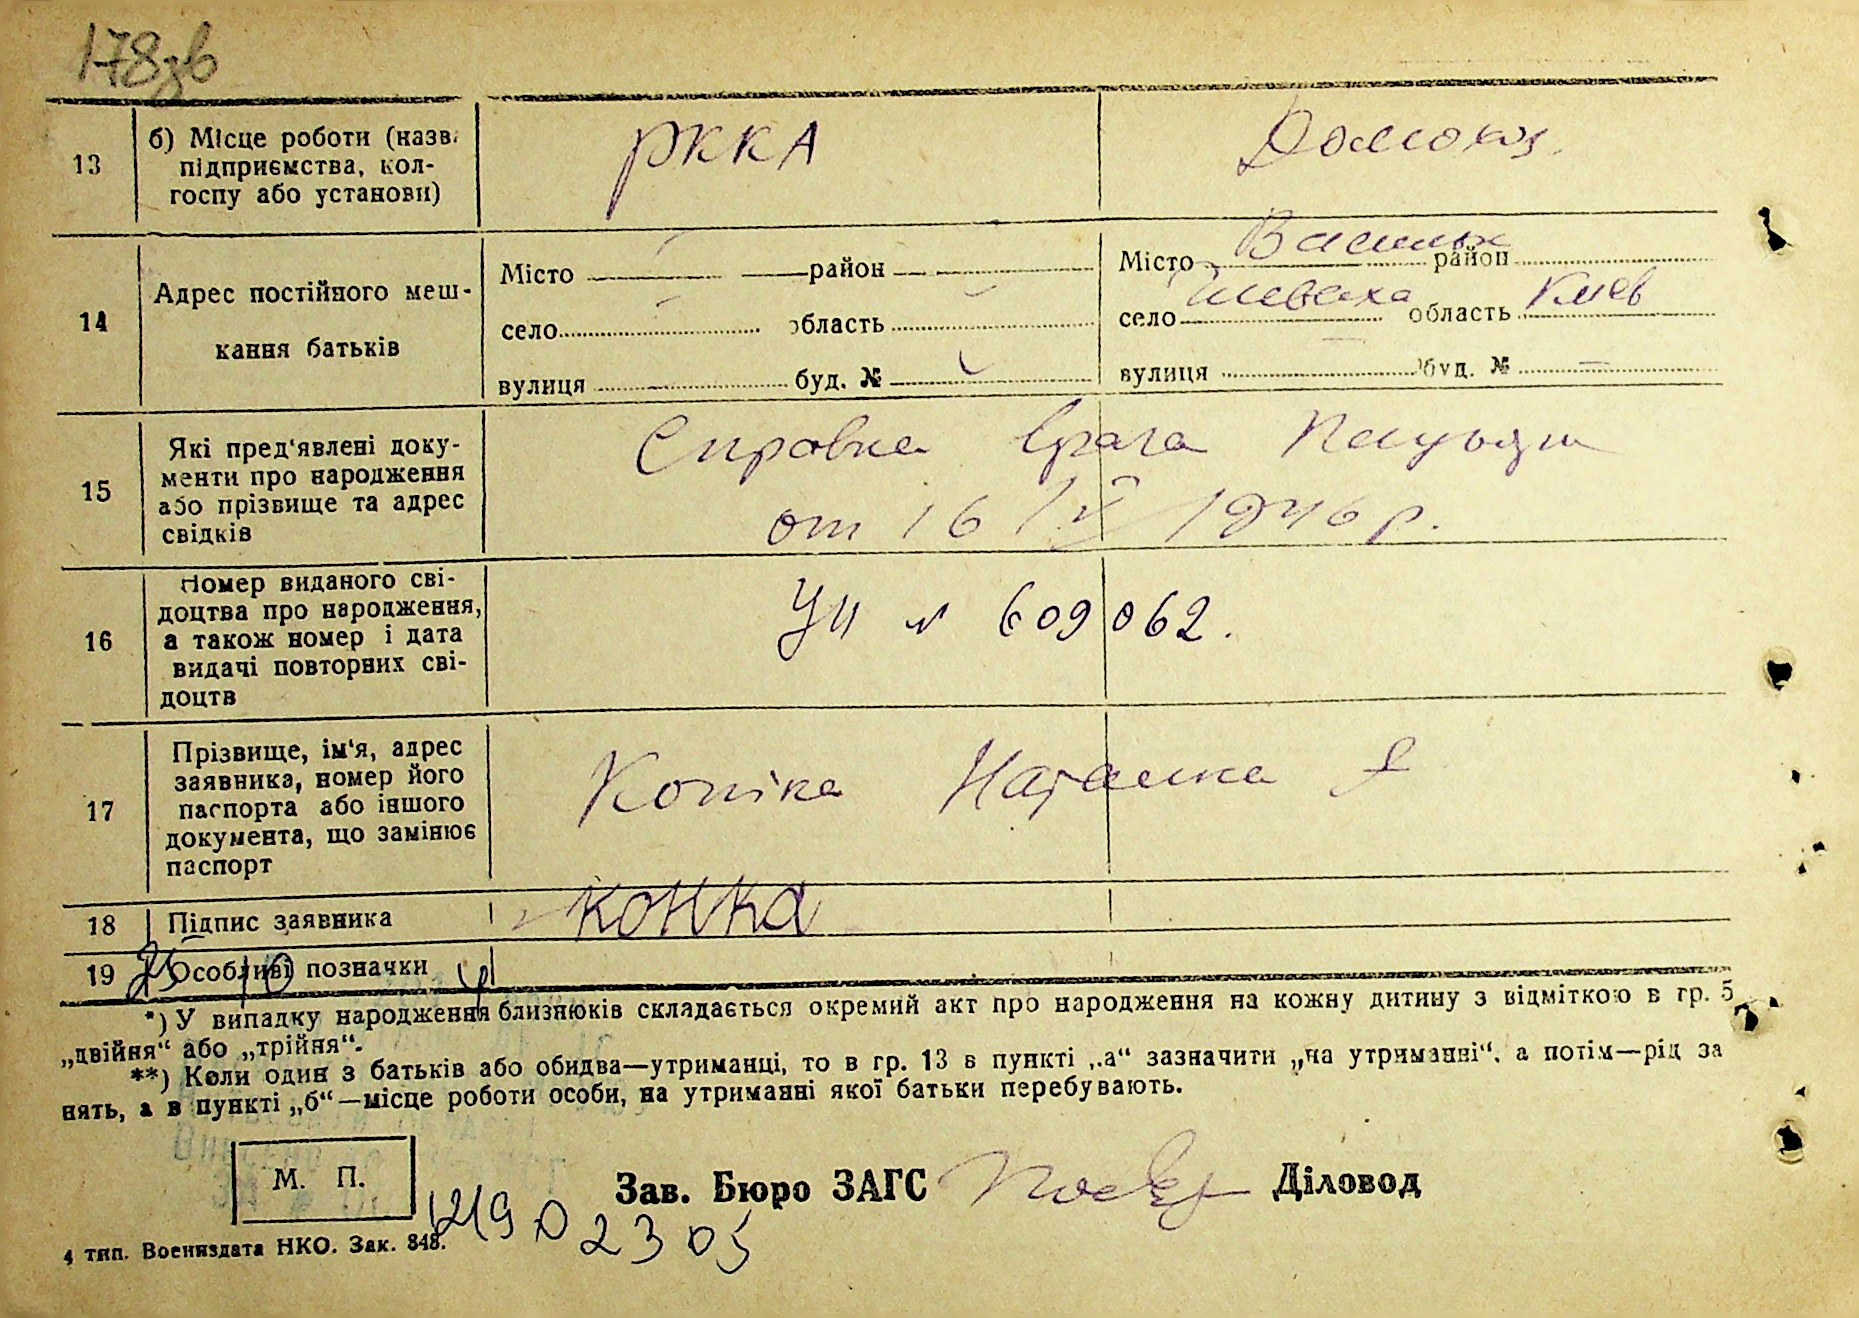 178зв
13
б) Місце роботи (назв.
підприємства, кол-
госпу або установи)
РККА
Домохоз.
14
Адрес постійного меш-
кання батьків
Місто район
село область
вулиця буд. №
Місто Васильк район
село область Киев
вулиця буд. №
15
Які пред'явлені доку-
менти про народження
або прізвище та адрес
свідків
Справка врача
от 16/V 1946 р.
16
Номер виданого сві-
доцтва про народження,
а також номер і дата
видачі повторних сві-
доцтв
УП № 609062.
17
Прізвище, ім'я, адрес
заявника, номер його
паспорта або іншого
документа, що замінює
паспорт
Копіка Наталка Я
18
Підпис заявника
19
Особливі позначки
*) У випадку народження близнюків складається окремий акт про народження на кожну дитину з відміткою в гр. 5
„двійня“ або „трійня“.
**) Коли один з батьків або обидва—утриманці, то в гр. 13 в пункті „а“ зазначити „на утриманні“, а потім—рід за
нять, а в пункті „б“—місце роботи особи, на утриманні якої батьки перебувають.
М. П.
Зав. Бюро ЗАГС Діловод
4 тип. Воениздата НКО. Зак. 848.